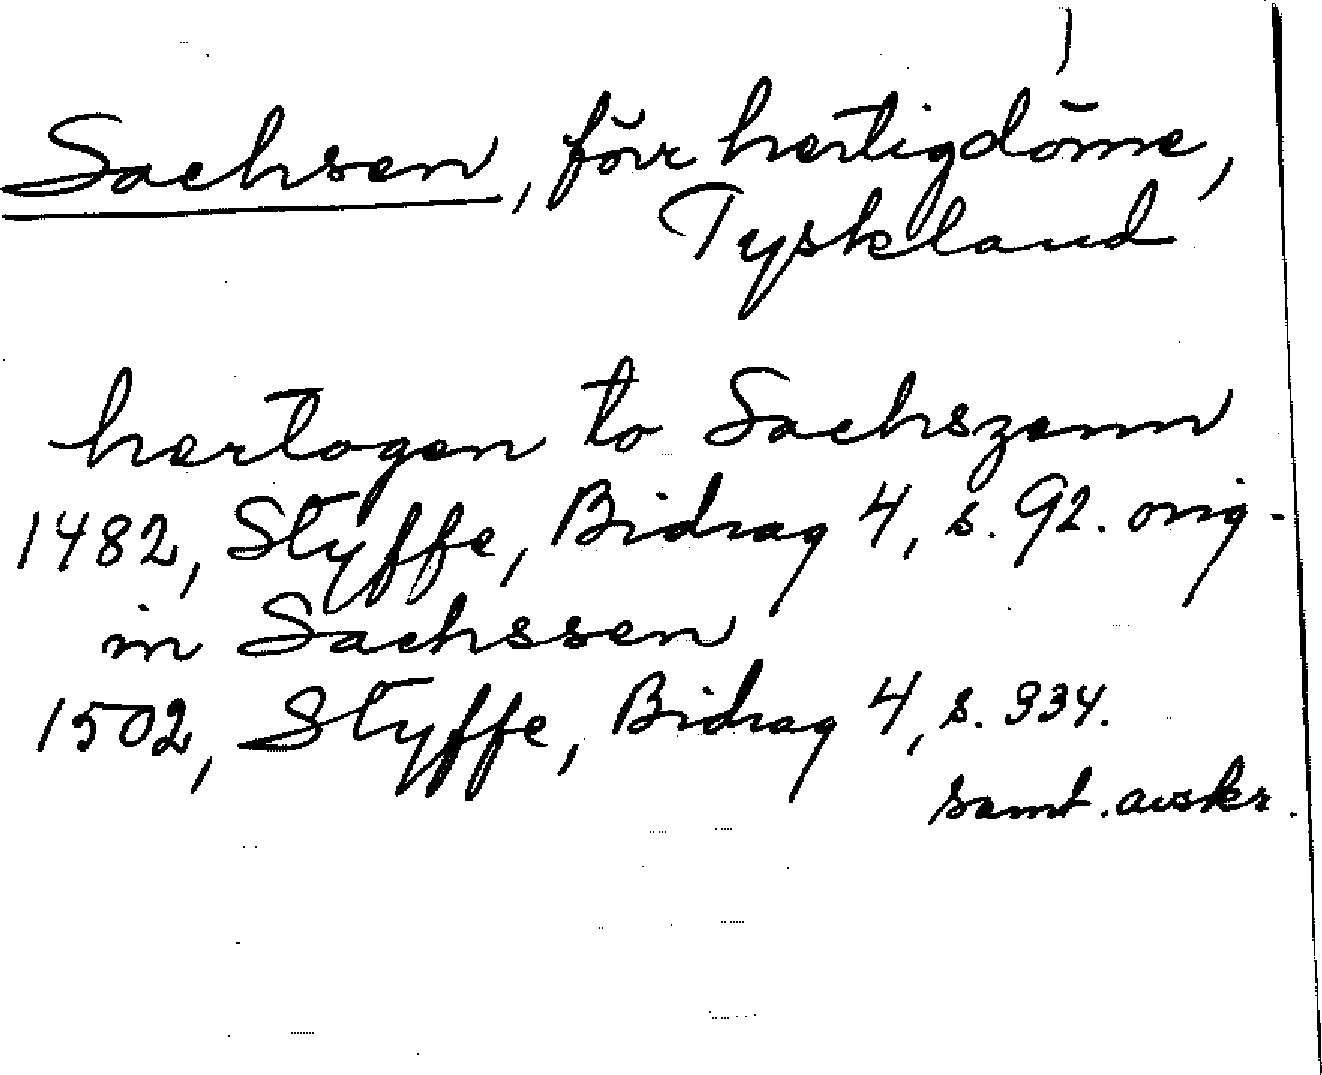 Sachsen, förr hertigdöme,
Tyskland
hertogen to Sachszenn
1482, Styffe, Bidrag 4, s. 92. orig.
in Sachssen
1502, Styffe, Bidrag 4, s. 334.
samt. avskr.